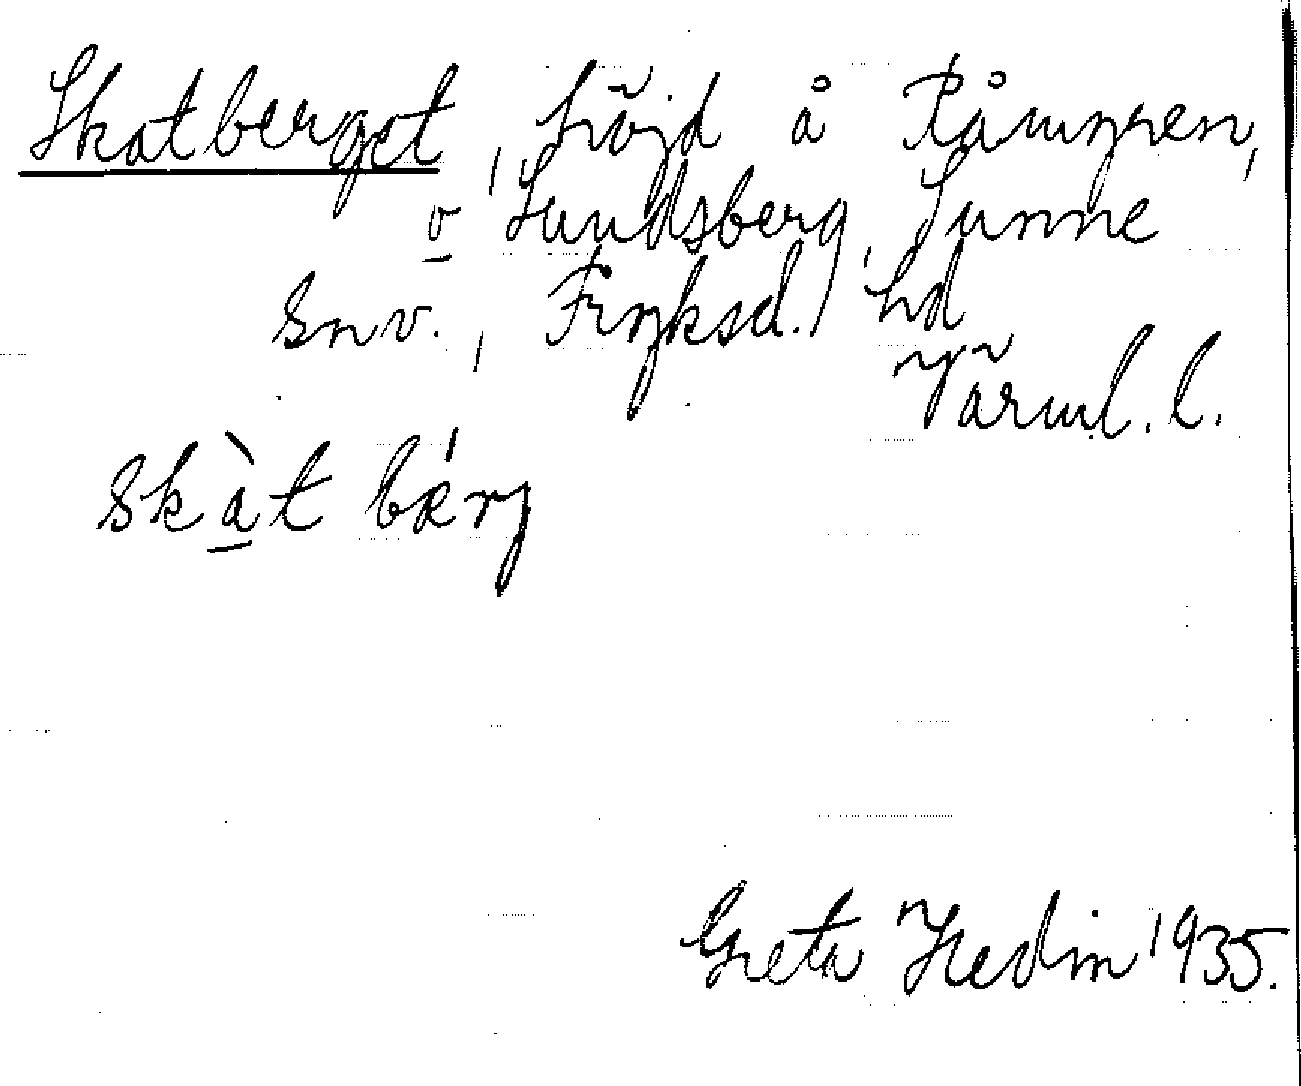 Skatberget, höjd å Råmyren,
v Lundsberg, Sunne
snv., Fryksd. hd
Värml. l.
skàt bærj
Greta Hedin 1935.